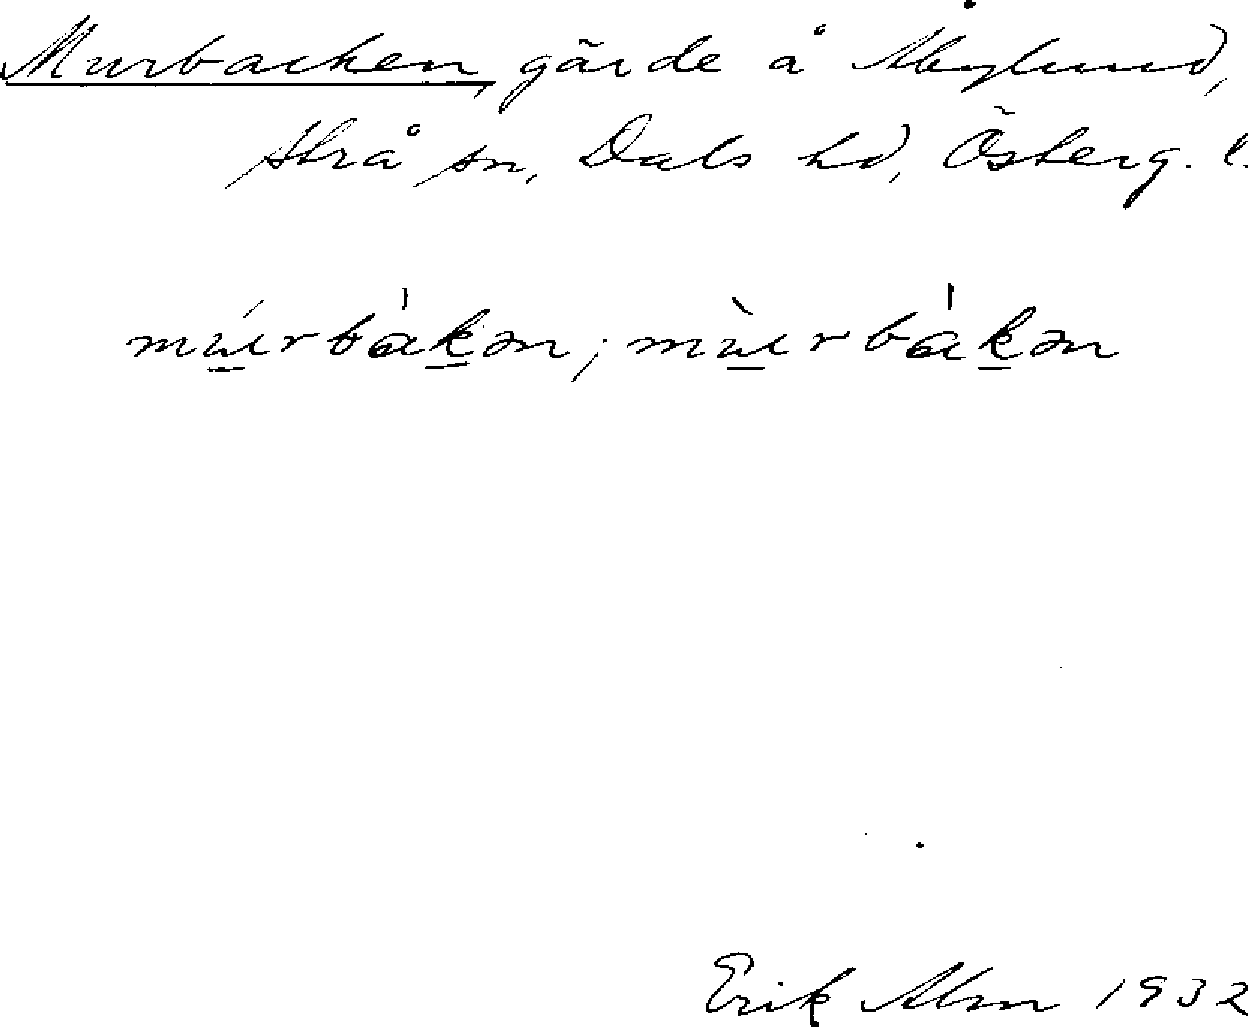 Murbacken, gärde å Åbylund,
Strå sn, Dals hd, Österg. l.
múrbàkən; mùrbákən
Erik Alm 1932